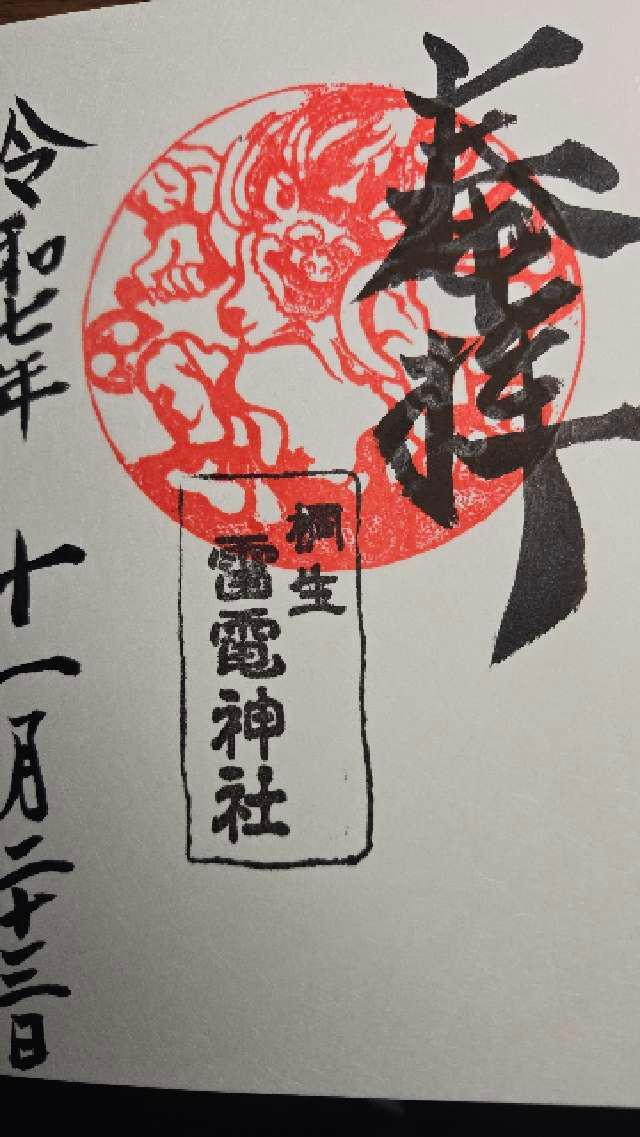 奉拝
桐生
雷電神社
令和七年 十一月二十三日